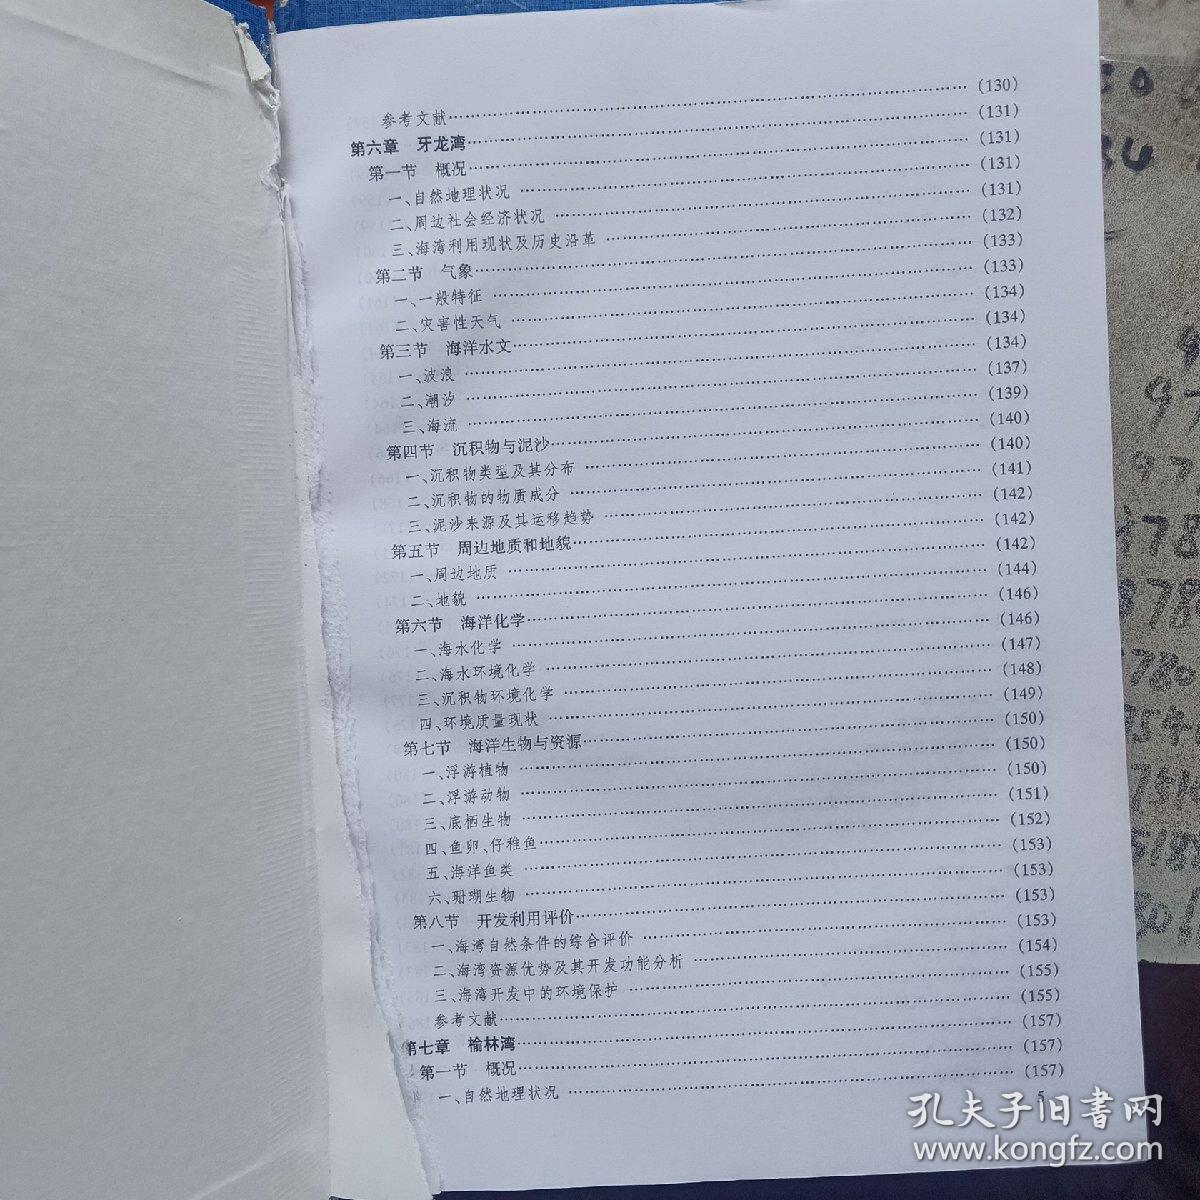 参考文献……(130)
第六章 牙龙湾……(131)
第一节 概况……(131)
一、自然地理状况……(131)
二、周边社会经济状况……(131)
三、海湾利用现状及历史沿革……(132)
第二节 气象……(133)
一、一般特征……(133)
二、灾害性天气……(134)
第三节 海洋水文……(134)
一、波浪……(134)
二、潮汐……(137)
三、海流……(139)
第四节 沉积物与泥沙……(140)
一、沉积物类型及其分布……(140)
二、沉积物的物质成分……(141)
三、泥沙来源及其运移趋势……(142)
第五节 周边地质和地貌……(142)
一、周边地质……(142)
二、地貌……(144)
第六节 海洋化学……(146)
一、海水化学……(146)
二、海水环境化学……(147)
三、沉积物环境化学……(148)
四、环境质量现状……(149)
第七节 海洋生物与资源……(150)
一、浮游植物……(150)
二、浮游动物……(150)
三、底栖生物……(151)
四、鱼卵、仔稚鱼……(152)
五、海洋鱼类……(153)
六、珊瑚生物……(153)
第八节 开发利用评价……(153)
一、海湾自然条件的综合评价……(153)
二、海湾资源优势及其开发功能分析……(154)
三、海湾开发中的环境保护……(155)
参考文献……(155)
第七章 榆林湾……(157)
第一节 概况……(157)
一、自然地理状况……(157)
5
孔夫子旧书网
www.kongfz.com